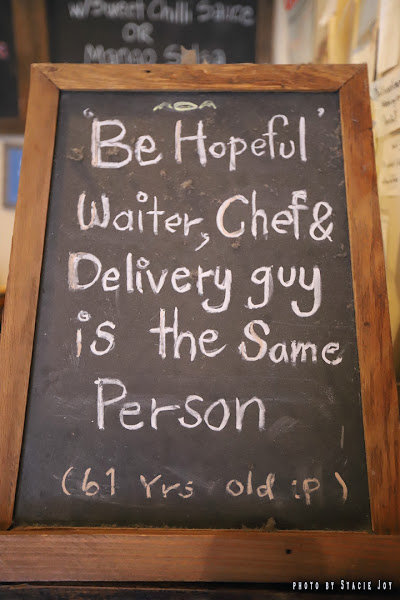 w/Sweet Chilli Sauce
OR
Mango Salsa
'Be Hopeful'
Waiter, Chef &
Delivery guy
is the same
Person
(61 Yrs old :p)
PHOTO BY STACIE JOY